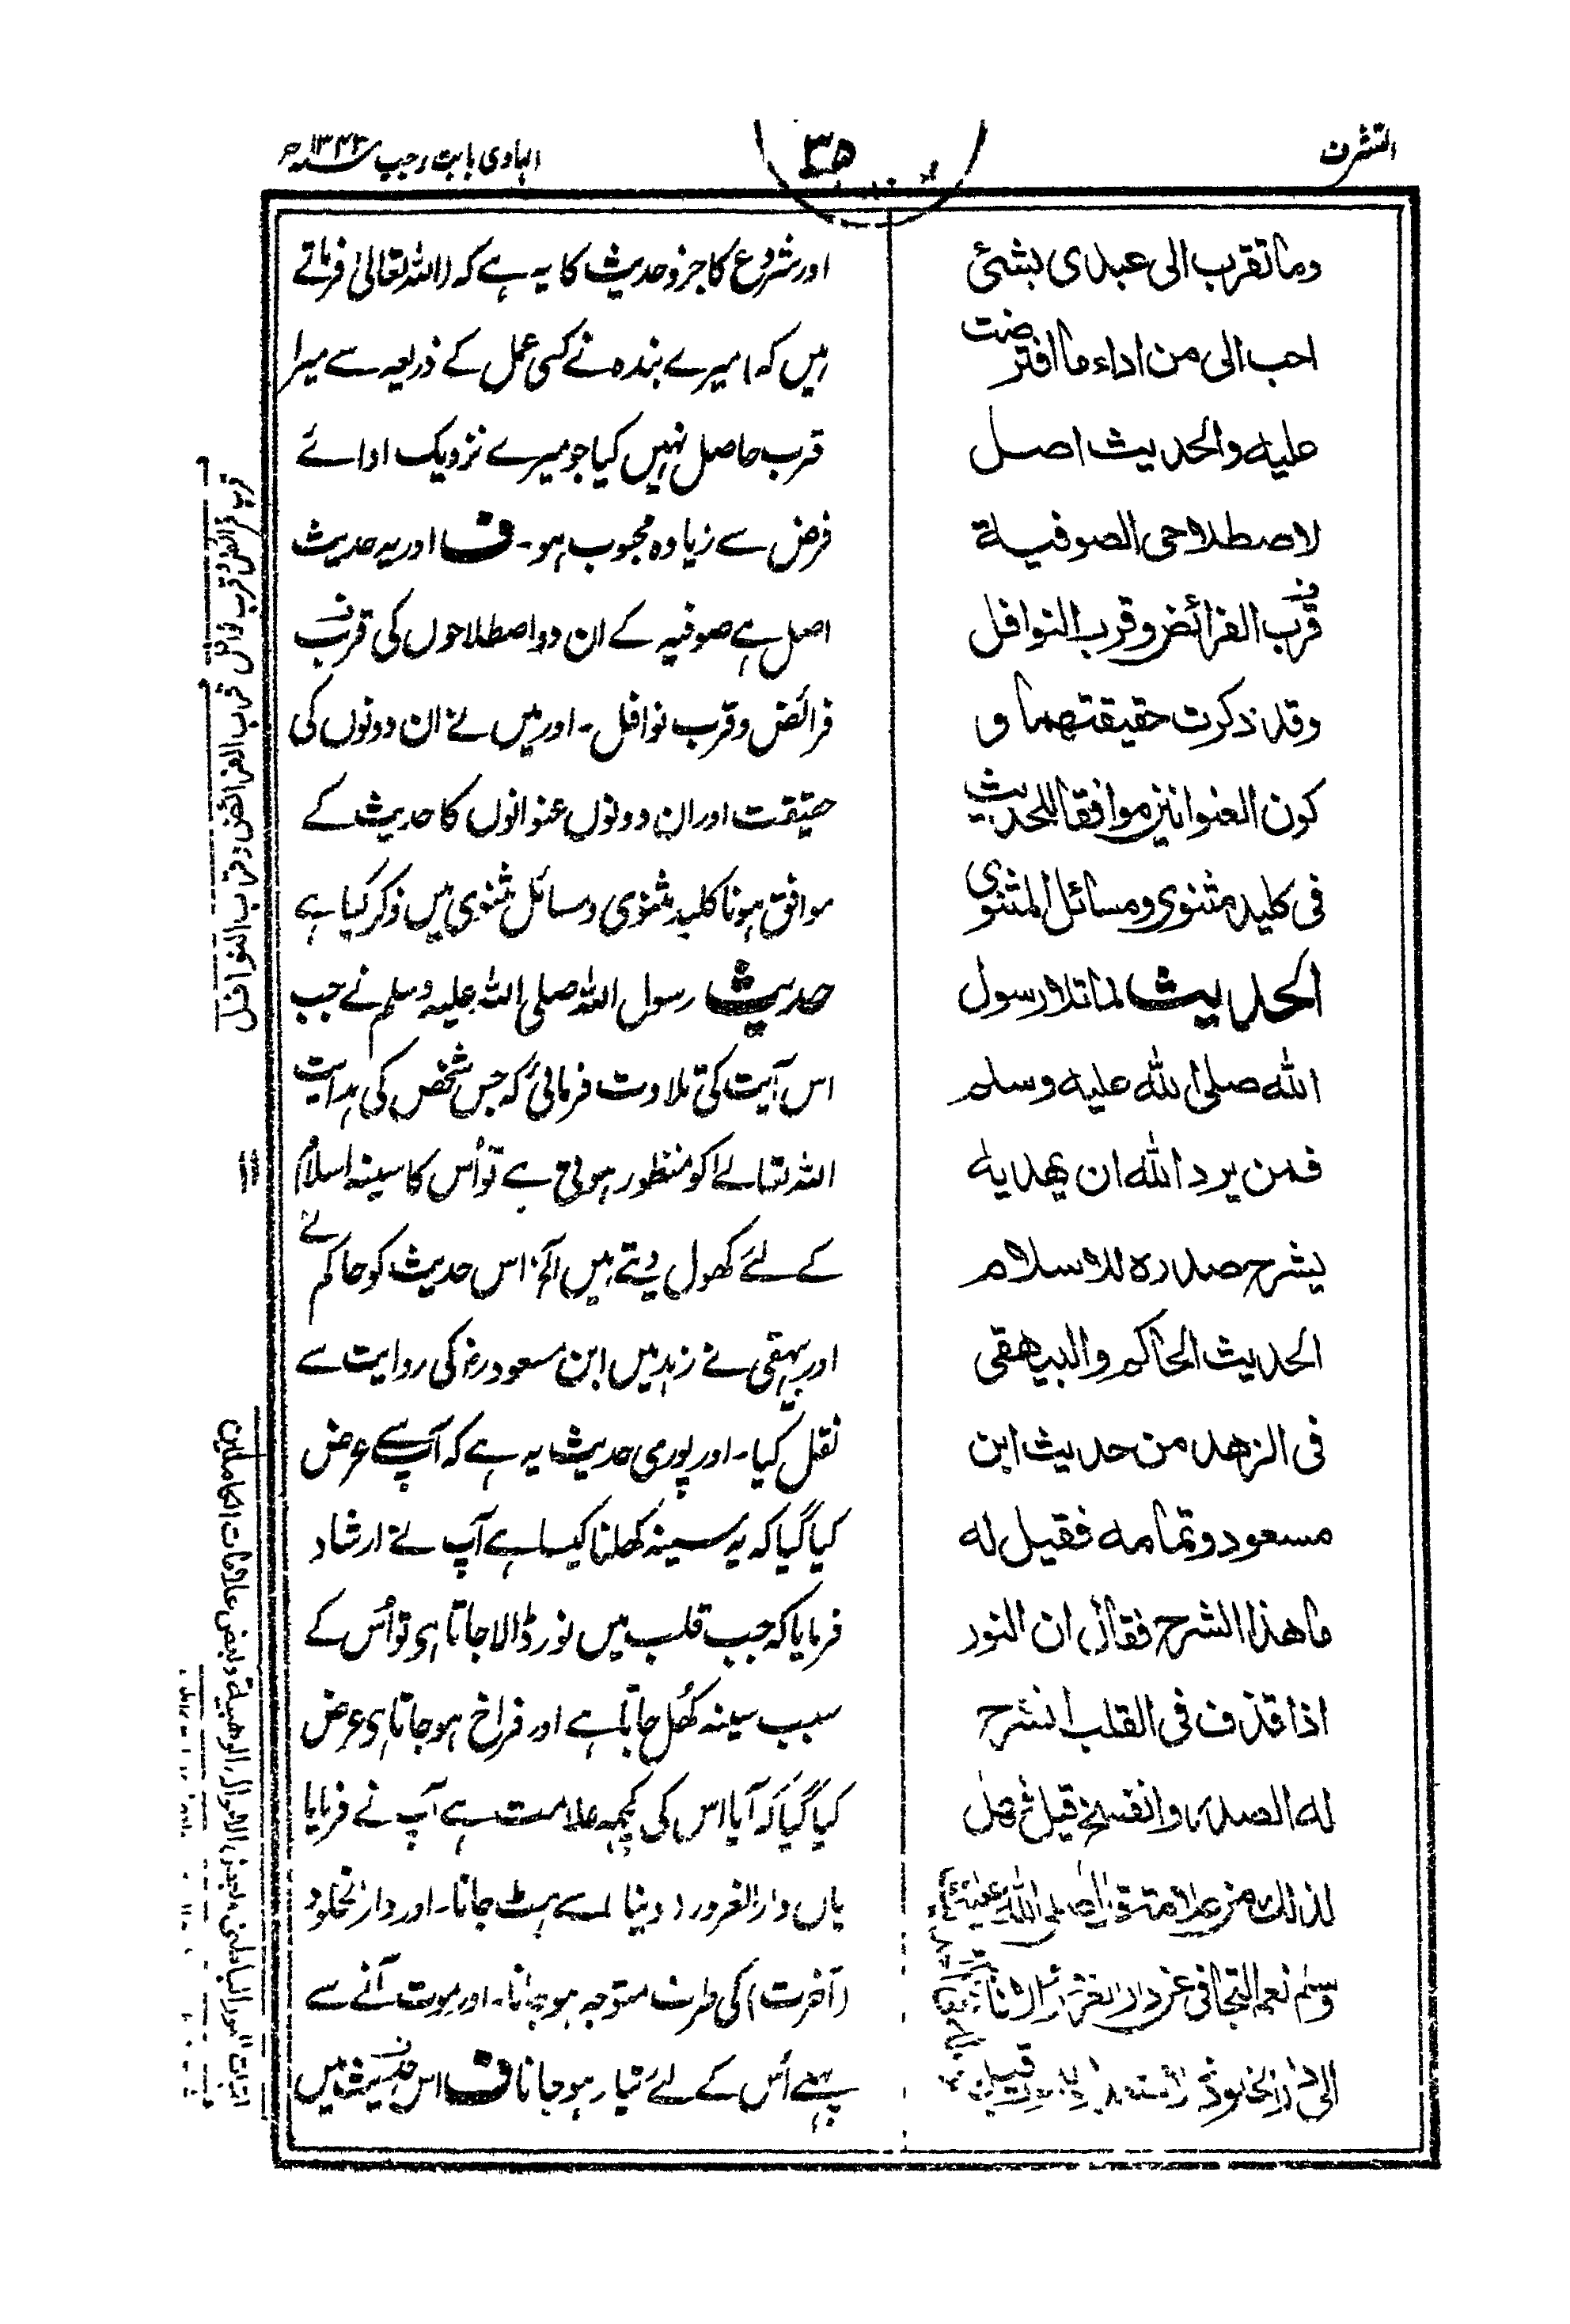 التشرف
۳۵
الہادی بابت رجب ۱۳۴۳ھ
وما تقرب الی عبدی بشئ
احب الی من اداء ما افترضت
علیه والحدیث اصل
لاصطلاحی الصوفیة
قرب الفرائض وقرب النوافل
وقد ذکرت حقیقتهما و
کون العنوانین موافقا للحدیث
فی کلید مثنوی ومسائل المثنوی
الحدیث لما تلا رسول
الله صلی الله علیه وسلم
فمن یرد الله ان یهدیه
یشرح صدره للاسلام
الحدیث الحاکم والبیهقی
فی الزهد من حدیث ابن
مسعود وتمامه فقیل له
ما هذا الشرح فقال ان النور
اذا قذف فی القلب انشرح
له الصدر وانفسح قیل فهل
لذلك من علامة قال صلی الله علیه
وسلم نعم التجافی عن دار الغرور والانابة
الی دار الخلود
اور شروع کا جزو حدیث کا یہ ہے کہ (اللہ تعالیٰ فرماتے
ہیں کہ) میرے بندہ نے کسی عمل کے ذریعہ سے میرا
قرب حاصل نہیں کیا جو میرے نزدیک ادائے
فرض سے زیادہ محبوب ہو۔ ف اور یہ حدیث
اصل ہے صوفیہ کے ان دو اصطلاحوں کی قرب
فرائض و قرب نوافل۔ اور میں نے ان دونوں کی
حقیقت اور ان دونوں عنوانوں کا حدیث کے
موافق ہونا کلید مثنوی و مسائل مثنوی میں ذکر کیا ہے
حدیث رسول اللہ صلی اللہ علیہ وسلم نے جب
اس آیت کی تلاوت فرمائی کہ جس شخص کی ہدایت
اللہ تعالےٰ کو منظور ہوتی ہے تو اُس کا سینہ اسلام
کے لئے کھول دیتے ہیں الخ اس حدیث کو حاکم نے
اور بیہقی نے زہد میں ابن مسعود رض کی روایت سے
نقل کیا۔ اور پوری حدیث یہ ہے کہ آپ سے عرض
کیا گیا کہ یہ سینہ کھلنا کیسا ہے آپ نے ارشاد
فرمایا کہ جب قلب میں نور ڈالا جاتا ہی تو اُس کے
سبب سینہ کھُل جاتا ہے اور فراخ ہو جاتا ہی عرض
کیا گیا کہ آیا اس کی کچھ علامت ہے آپ نے فرمایا
ہاں دار الغرور (دنیا) سے ہٹ جانا۔ اور دار الخلود
(آخرت) کی طرف متوجہ ہو جانا۔ اور موت آنے سے
پہلے اُس کے لئے تیار ہو جانا ف اس حدیث میں
قرب فرائض و قرب نوافل
قرب الفرائض وقرب النوافل